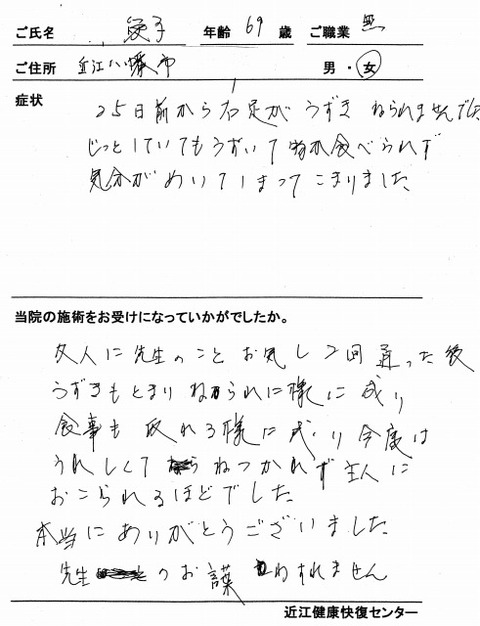 ご氏名 愛子 年齢 69 歳 ご職業 無
ご住所 近江八幡市 男・女
症状
25日前から右足がうずき ねられませんでした
じっとしていてもうずいて物が食べられず
気分がめいてしまってこまりました
当院の施術をお受けになっていかがでしたか。
友人に先生のことお気し2回通った後
うずきもとまりねられに様に成り
食事も取れる様に成り今度は
うれしくて ねつかれず主人に
おこられるほどでした
本当にありがとうございました
先生 のお言葉 わすれません
近江健康快復センター